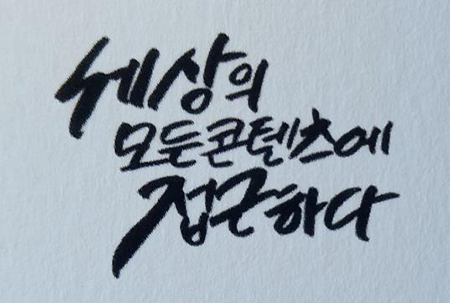 세상의
모든콘텐츠에
접근하다